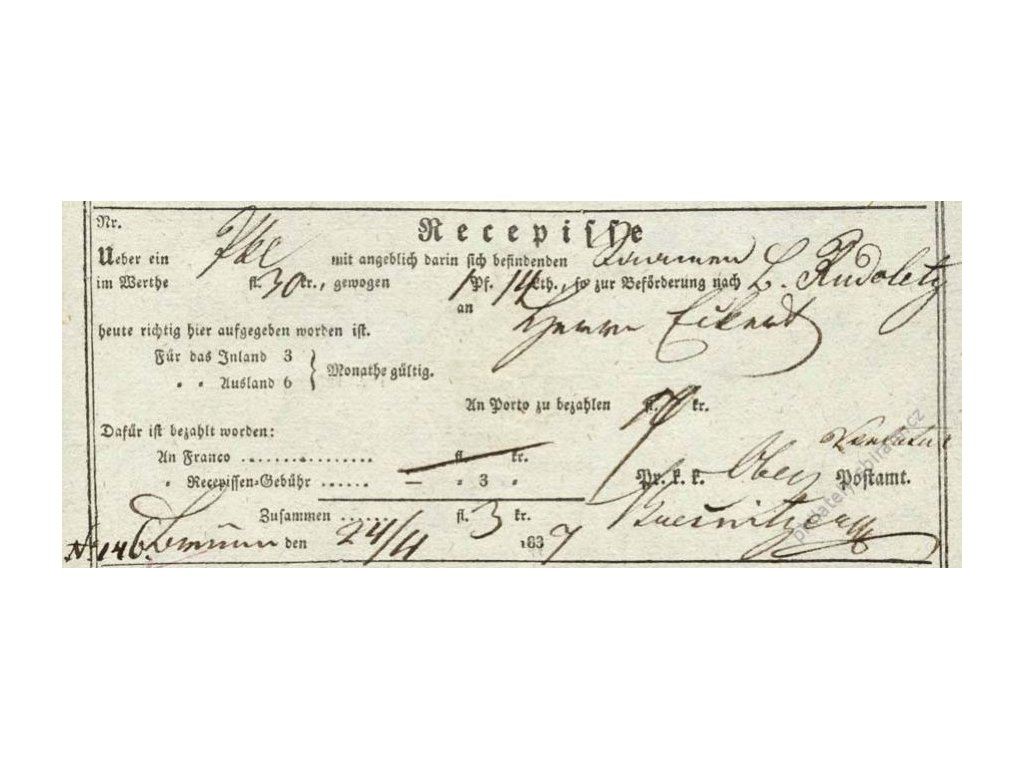 Nr. Recepisse
Ueber ein Pkl mit angeblich darin sich befindenden
im Werthe fl. 30 kr., gewogen 1 Pf. 14 Lth., so zur Beförderung nach L. Rudoletz
an Herrn Eckert
heute richtig hier aufgegeben worden ist.
Für das Inland 3
" " Ausland 6 } Monathe gültig.
An Porto zu bezahlen fl. kr.
Dafür ist bezahlt worden:
An Franco .................. fl. kr.
" Recepissen-Gebühr ...... — " 3 "
Pr. k. k. Ober Postamt.
Zusammen ...... fl. 3 kr.
No 146 Brünn den 24/4 1837